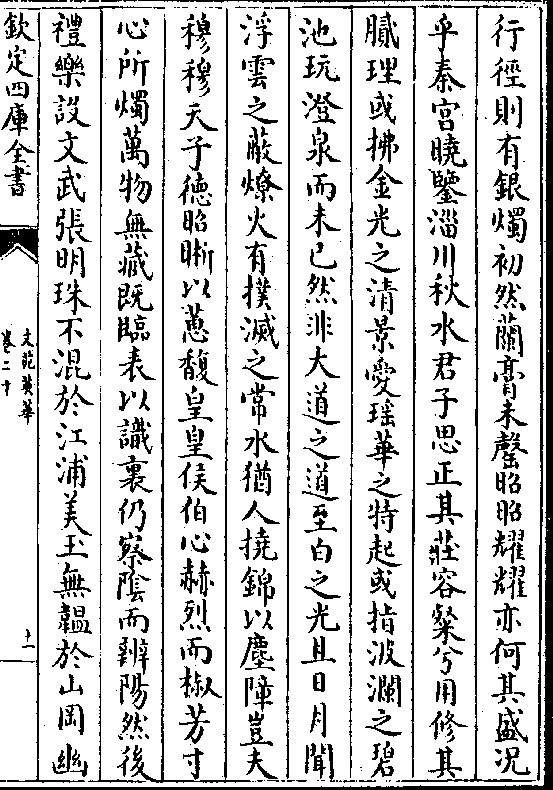 行徑則有銀燭初然蘭膏未罄昭昭耀耀亦何其盛况
乎秦宫曉鑒淄川秋水君子思正其莊容粲兮用修其
膩理或拂金光之清景愛瑶華之特起或指波瀾之碧
池玩澄泉而未已然非大道之道至白之光且日月聞
浮雲之蔽燎火有撲滅之常水猶人撓錦以塵障豈夫
穆穆天子德昭晰以蕙馥皇皇侯伯心赫烈而椒芳寸
心所燭萬物無藏既臨表以識裏仍察隂而辨陽然後
禮樂設文武張明珠不混於江浦美玉無韞於山岡幽
欽定四庫全書
文苑英華
卷二十
十一